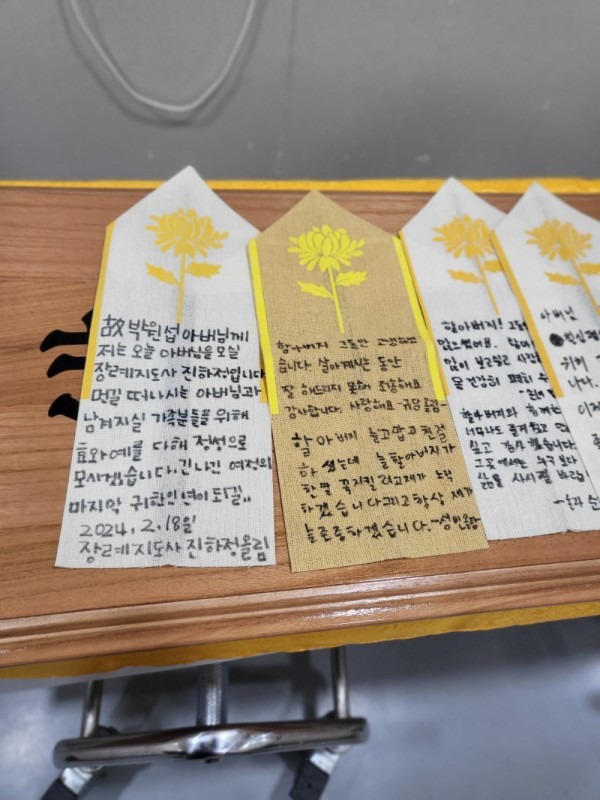 故박원섭아버님께
저는 오늘 아버님을 모실
장례지도사 진하정입니다
먼길 떠나시는 아버님과
남겨지실 가족분들을 위해
효와예를 다해 정성으로
모시겠습니다. 긴나긴 여정의
마지막 귀한인연이 되길..
2024. 2. 18일
장례지도사 진하정올림
할아버지 그동안 고생하셨
습니다. 살아계시는 동안
잘 해드리지 못해 죄송해요
감사합니다. 사랑해요
할아버지 늘고맙고친절
하셨는데 늘할아버지가
한말 꼭지킬려고제가 노력
하겠습니다그리고항상 제가
늘존중하겠습니다.
할아버지! 그동안
많으셨어요.
없이 보고싶고
할아버지와 함께하는
너무나도 즐거웠고
싶고 감사했습니다
그곳에서는 누구보다
삶을 사시길 바라
아버님
위해
니다.
이제